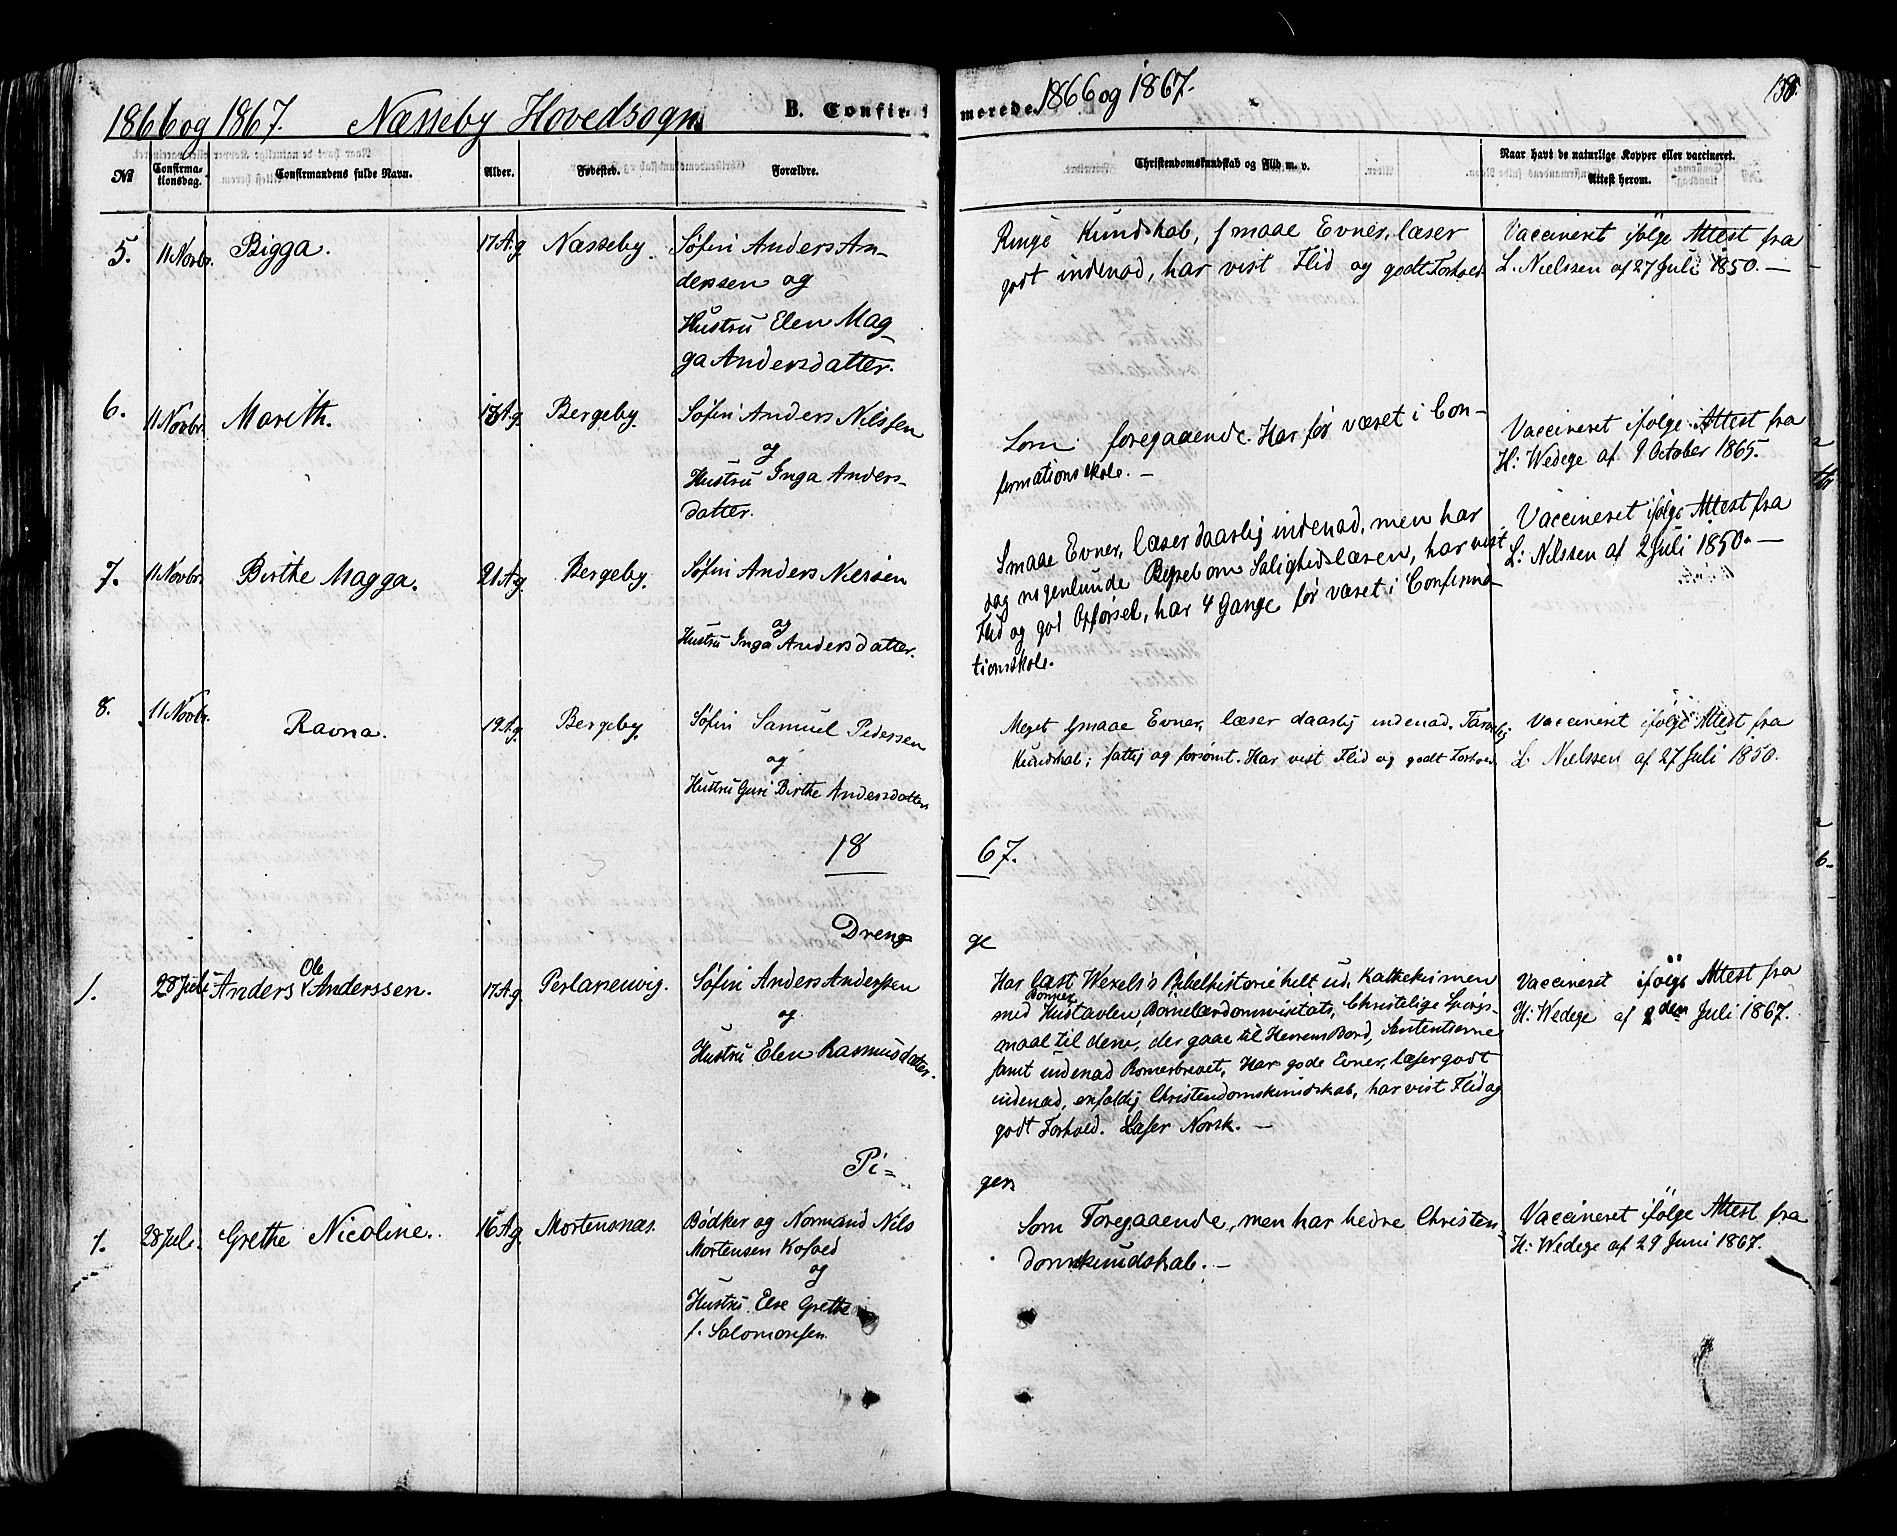 1866 og 1867. Næsseby Hovedsogn. B. Confir-
merede 1866 og 1867. 138.
No Confirmationsdag. Confirmandens fulde Navn. Alder. Fødested. Forældre.
Christendomskundskab og Flid m. v. Naar havt de naturlige Kopper eller vaccineret. Attest herom.
5. 11 Novbr. Bigga. 17 Ag Næsseby. Søfin Anders An-
derssen og
Hustru Elen Mag-
ga Andersdatter.
Ringe Kundskab, smaae Evner, læser
godt indenad, har vist Flid og godt Forhold.
Vaccineret ifølge Attest fra
L. Nielssen af 27 Juli 1850. —
6. 11 Novbr. Marith. 18 Ag. Bergeby. Søfin Anders Nilssen
og
Hustru Inga Anders-
datter.
Som foregaaende. Har før været i Con-
firmationsskole. —
Vaccineret ifølge Attest fra
H: Wedege af 9 October 1865.
7. 11 Novbr. Birthe Magga. 21 Ag Bergeby. Søfin Anders Nilsen
og
Hustru Inga Andersdatter.
Smaae Evner, læser daarlig indenad, men har
dog nogenlunde Begreb om Salighedslæren, har vist
Flid og god Opførsel, har 4 Gange før været i Confirma-
tionsskole.
Vaccineret ifølge Attest fra
L: Nilssen af 2 Juli 1850. —
8. 11 Novbr. Ravna. 19 Ag. Bergeby. Søfin Samuel Pederssen
og
Hustru Guri Birthe Andersdatter
Meget smaae Evner, læser daarlig indenad. Tarvelig
Kundskab; fattig og forsømt. Har vist Flid og godt Forhold
Vaccineret ifølge Attest fra
L. Nielssen af 27 Juli 1850.
18 67.
Dreng ge
1. 28 Juli Anders Ole Anderssen. 17 Ag. Perlarienvig. Søfin Anders Anderssen
og
Hustru Elen Rasmusdatter.
Har læst Wexels's Bibelhistorie helt ud, Kathekismen
med Hustavlen, Bønner, Børnelærdomsvisitats, Christelige Spørgs-
maal til dem, der gaae til Herrens Bord, Sententserne
samt indenad Romerbrevet, Har gode Evner, læser godt
indenad, enfoldig Christendomskundskab, har vist Flid og
godt Forhold. Læser Norsk. —
Vaccineret ifølge Attest fra
H: Wedege af 2den Juli 1867.
Pi= ger
1. 28 Juli. Grethe Nicoline. 16 Ag. Mortensnæs. Bødker og Normand Nils
Mortensen Kofoed
og
Hustru Else Grethe
f. Salomonsen.
Som Foregaaende, men har bedre Christen-
domskundskab. —
Vaccineret ifølge Attest fra
H: Wedege af 29 Juni 1867.